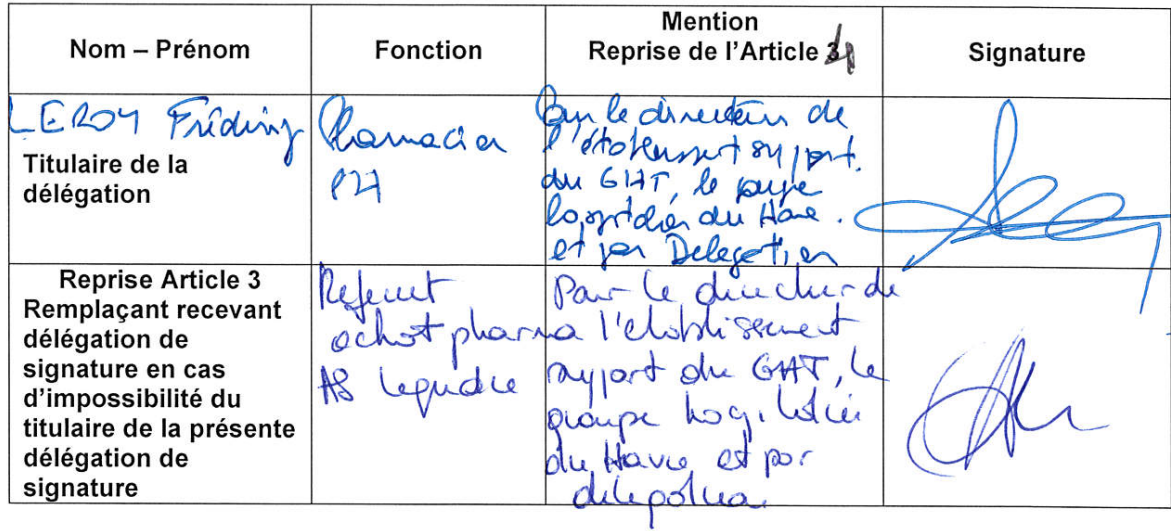 Nom – Prénom
Fonction
Mention
Reprise de l'Article 3 4
Signature
LEROY Frédéric
Titulaire de la
délégation
Pharmacien
PH
Pour le directeur de
l'établissement support
du GHT, le groupe
hospitalier du Havre
et par Delegation
Reprise Article 3
Remplaçant recevant
délégation de
signature en cas
d'impossibilité du
titulaire de la présente
délégation de
signature
Referent
achat pharma
AS
Pour le directeur de
l'etablissement
support du GHT, le
groupe hospitalier
du Havre et par
delegation